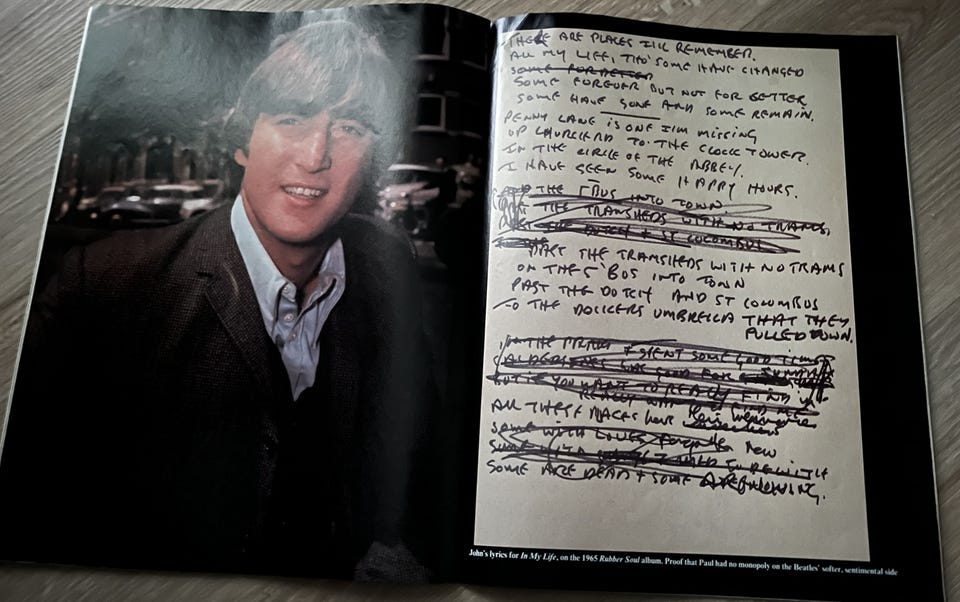 THERE ARE PLACES I'LL REMEMBER.
ALL MY LIFE, THO' SOME HAVE CHANGED
SOME FOR BETTER
SOME FOREVER BUT NOT FOR BETTER
SOME HAVE GONE AND SOME REMAIN.
PENNY LANE IS ONE I'M MISSING
UP CHURCH RD TO THE CLOCK TOWER.
IN THE CIRCLE OF THE ABBEY.
I HAVE SEEN SOME HAPPY HOURS.
THE 5 BUS INTO TOWN.
THE TRAMSHEDS WITH NO TRAMS,
PAST THE DUTCH + ST COLUMBUS
PAST THE TRAMSHEDS WITH NO TRAMS
ON THE 5 BUS INTO TOWN
PAST THE DUTCH AND ST COLUMBUS
TO THE DOCKERS UMBRELLA THAT THEY
PULLED DOWN.
IN THE I SPENT SOME GOOD TIMES
GOOD FOR
BUT IF YOU WANT TO REALLY FIND
REALLY WANT FIND ME
ALL THESE PLACES HAVE
SOME WITH LOVERS NEW
SOME WITH TO BE WITH
SOME ARE DEAD + SOME ARE LIVING.
John's lyrics for In My Life, on the 1965 Rubber Soul album. Proof that Paul had no monopoly on the Beatles' softer, sentimental side